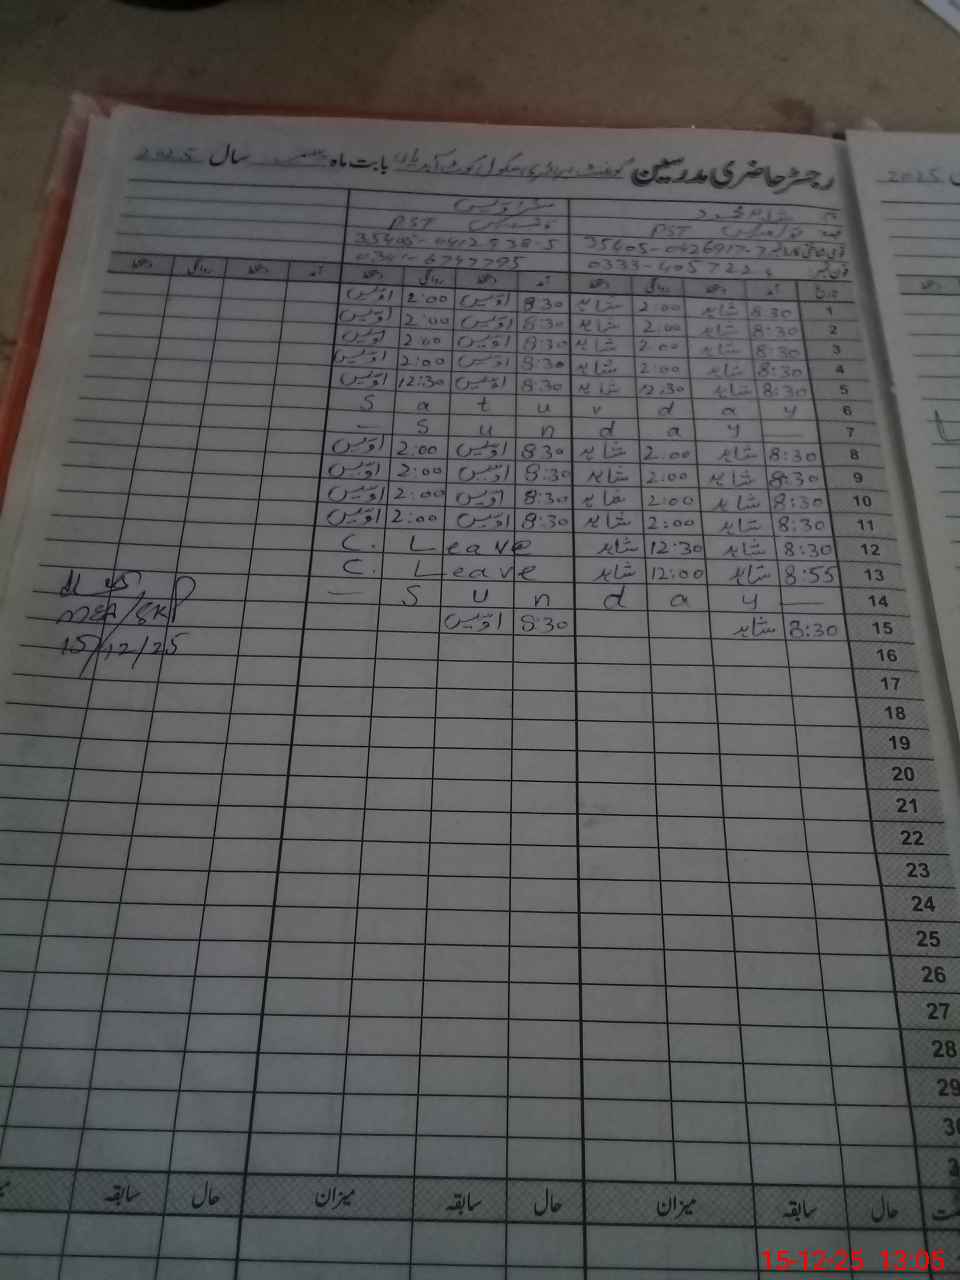 رجسٹر حاضری مدرسین گورنمنٹ پرائمری سکول کوٹ بابت ماہ سال 2025
شاہد محمود
PST PST
35405-0426917-7 35405-0412938-5
0333-405722 0341-6747795
تاریخ آمد دستخط روانگی دستخط آمد دستخط روانگی دستخط آمد دستخط روانگی دستخط
1 8:30 شاہد 2:00 شاہد 8:30 اویس 2:00 اویس
2 8:30 شاہد 2:00 شاہد 8:30 اویس 2:00 اویس
3 8:30 شاہد 2:00 شاہد 8:30 اویس 2:00 اویس
4 8:30 شاہد 2:00 شاہد 8:30 اویس 2:00 اویس
5 8:30 شاہد 12:30 شاہد 8:30 اویس 12:30 اویس
6 S a t u r d a y
7 — S u n d a y —
8 8:30 شاہد 2:00 شاہد 8:30 اویس 2:00 اویس
9 8:30 شاہد 2:00 شاہد 8:30 اویس 2:00 اویس
10 8:30 شاہد 2:00 شاہد 8:30 اویس 2:00 اویس
11 8:30 شاہد 2:00 شاہد 8:30 اویس 2:00 اویس
12 8:30 شاہد 12:30 شاہد C. Leave
13 8:55 شاہد 12:00 شاہد C. Leave
14 — S u n d a y —
15 8:30 شاہد 8:30 اویس
MEA/SKP
15/12/25
16
17
18
19
20
21
22
23
24
25
26
27
28
29
حال سابقہ میزان حال سابقہ میزان حال سابقہ
2025
15-12-25 13:05